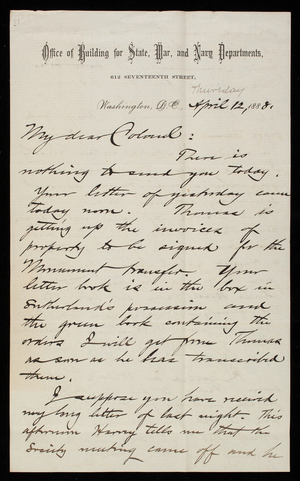 Office of Building for State, War, and Navy Departments,
612 SEVENTEENTH STREET,
Thursday
Washington, D.C. April 12, 1888.
My dear Colonel:
There is
nothing to send you today.
Your letter of yesterday came
today noon. Thomas is
getting up the invoices of
property to be signed for the
Monument transfer. Your
letter book is in the box in
Sutherland's possession and
the green book containing the
orders I will get from Thomas
as soon as he has transcribed
them.
I suppose you have received
my long letter of last night. This
afternoon Harry tells me that the
Society meeting came off and he